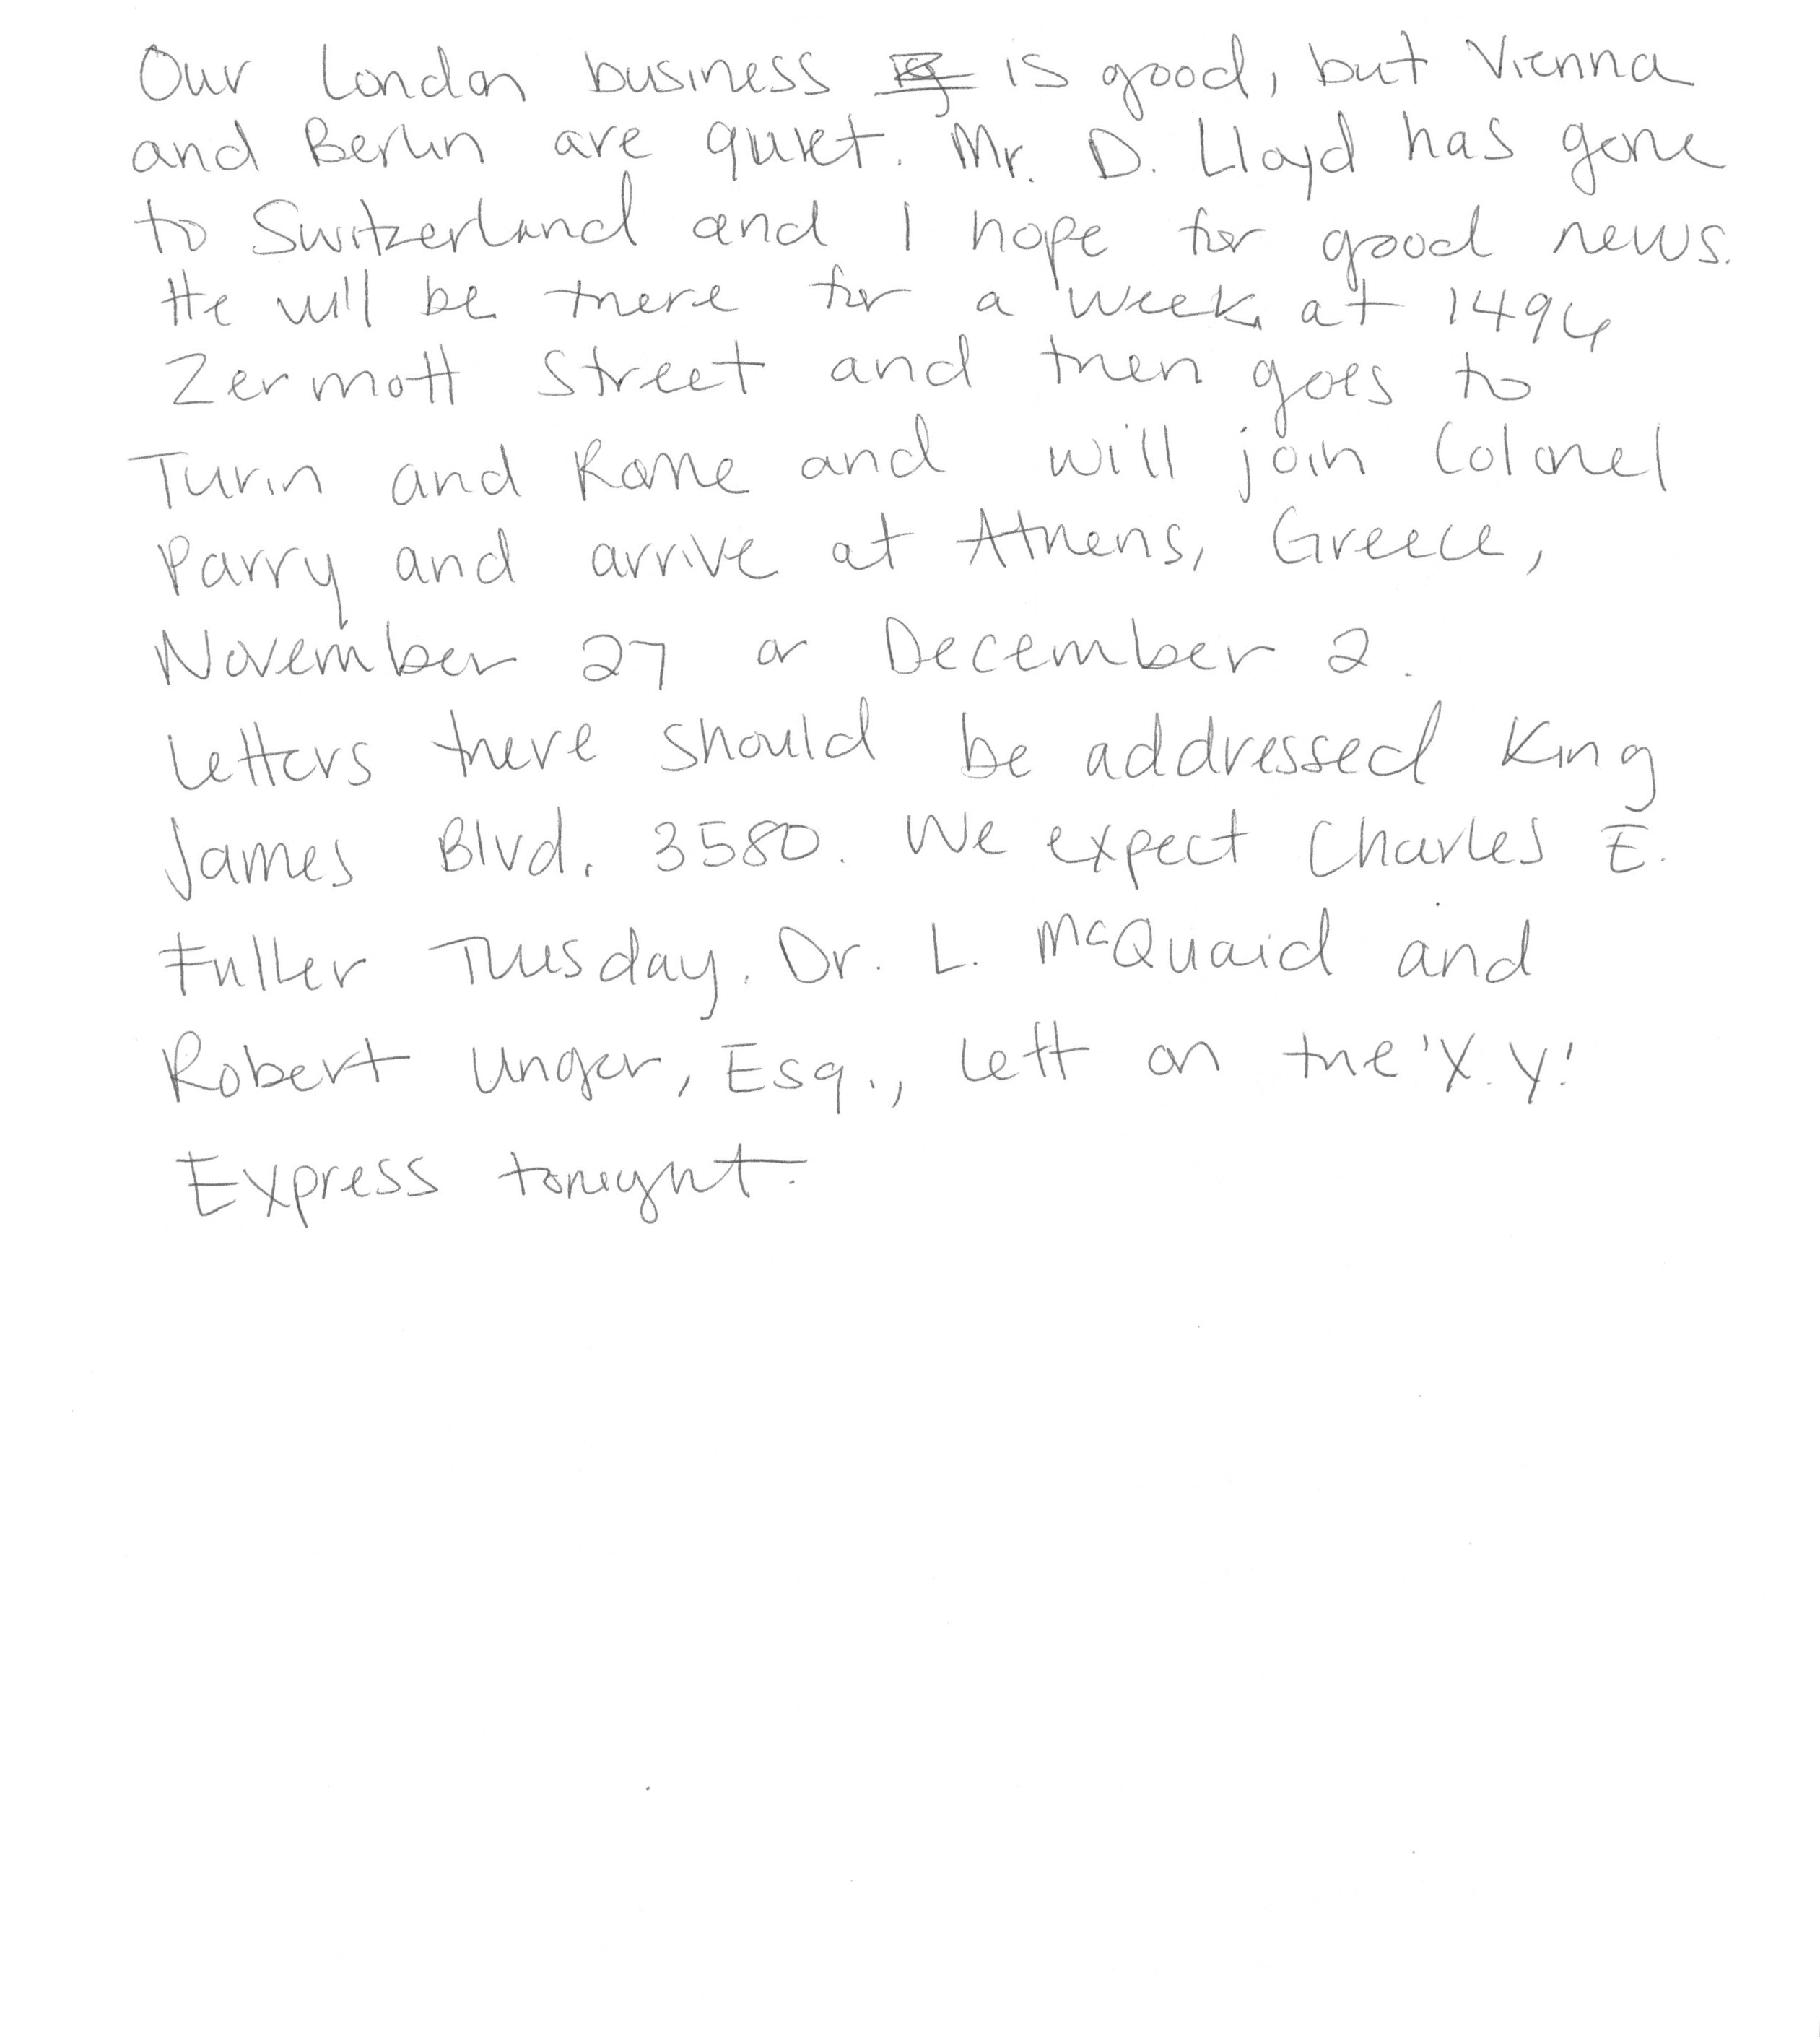 Our London business is good, but Vienna
and Berlin are quiet. Mr. D. Lloyd has gone
to Switzerland and I hope for good news.
He will be there for a week at 1496
Zermott Street and then goes to
Turin and Rome and will join Colonel
Parry and arrive at Athens, Greece,
November 27 or December 2.
Letters there should be addressed King
James Blvd. 3580. We expect Charles E.
Fuller Tuesday. Dr. L. McQuaid and
Robert Unger, Esq., left on the 'X.Y.'
Express tonight.